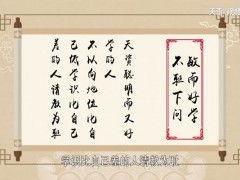 敏而好学
不耻下问
天资聪明而又好
学的人
不以向地位比自
己低学识比自己
差的人请教为耻
学识比自己差的人请教为耻